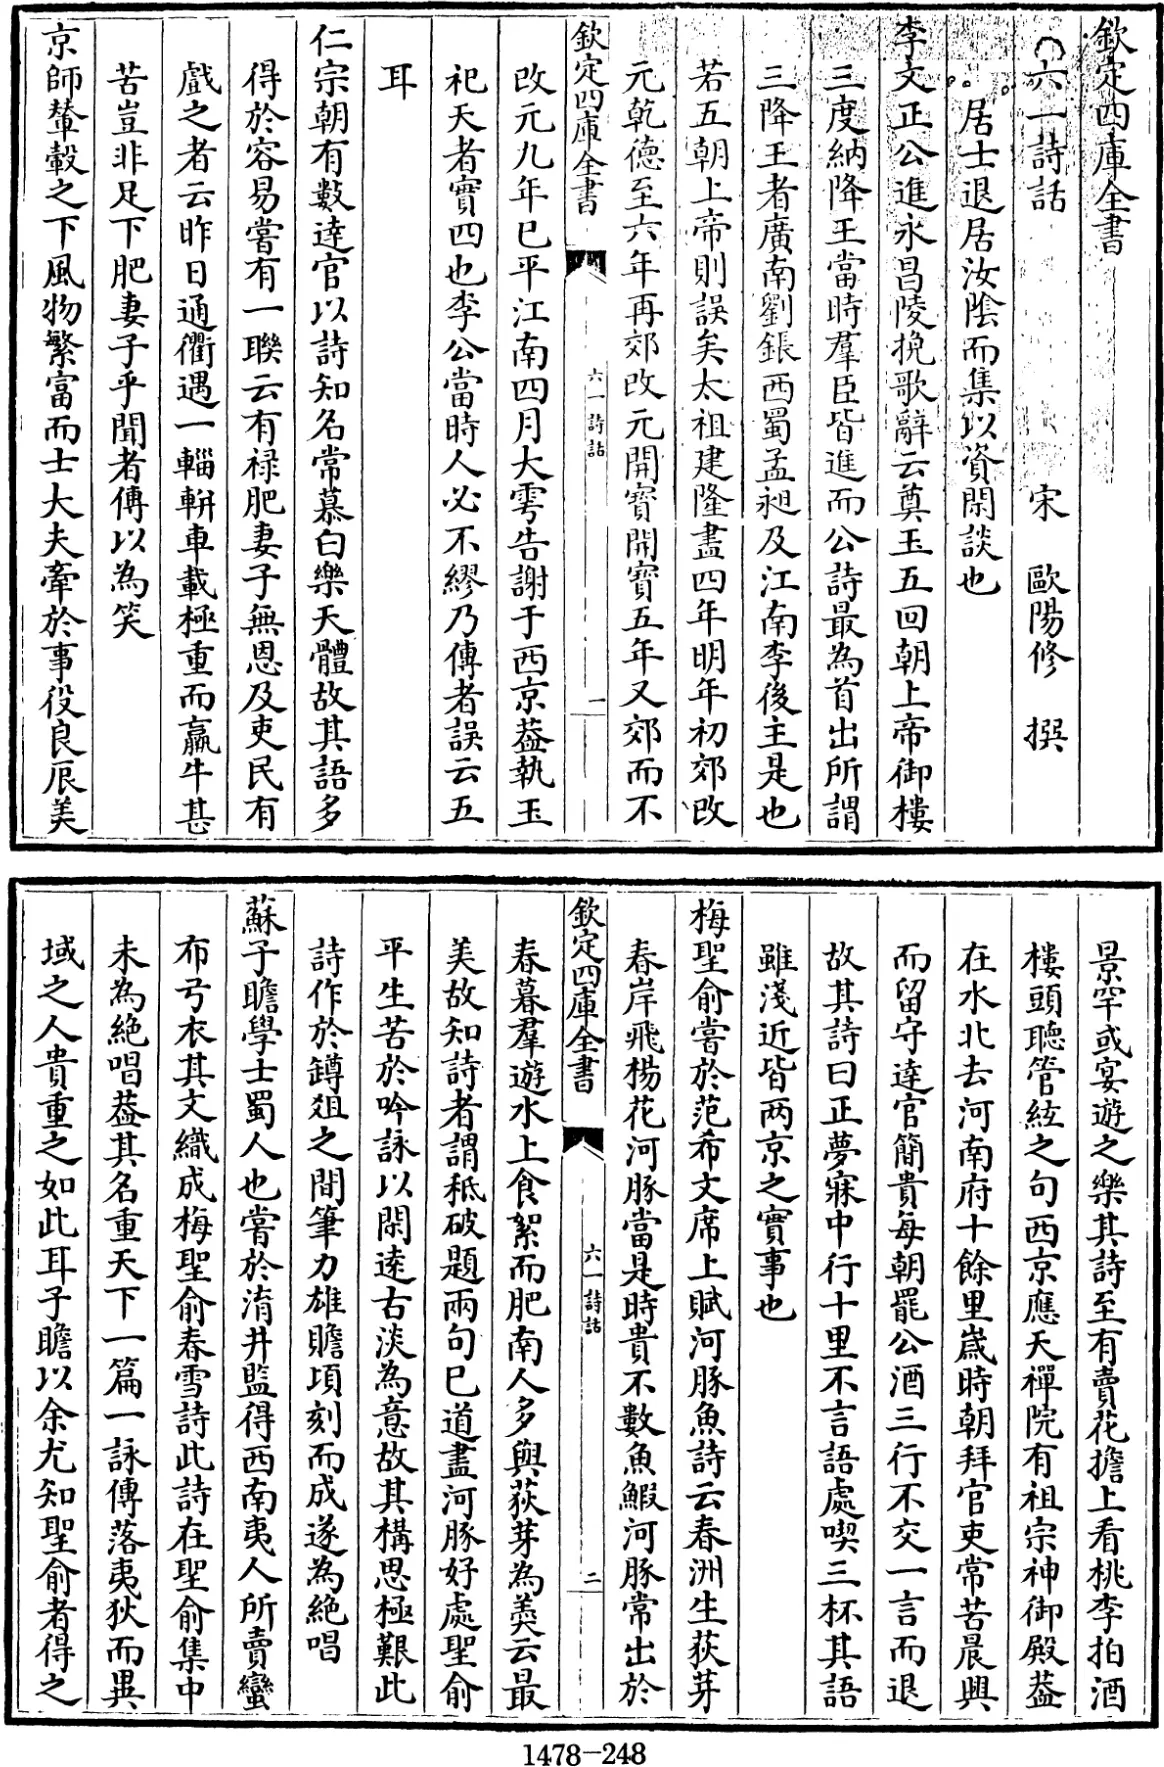 欽定四庫全書
六一詩話　宋　歐陽修　撰
居士退居汝陰而集以資閑談也
李文正公進永昌陵挽歌辭云奠玉五回朝上帝御樓
三度納降王當時羣臣皆進而公詩最為首出所謂
三降王者廣南劉鋹西蜀孟昶及江南李後主是也
若五朝上帝則誤矣太祖建隆盡四年明年初郊改
元乾德至六年再郊改元開寶開寶五年又郊而不
欽定四庫全書　六一詩話　一
改元九年已平江南四月大雩告謝于西京葢執玉
祀天者實四也李公當時人必不繆乃傳者誤云五
耳
仁宗朝有數達官以詩知名常慕白樂天體故其語多
得於容易嘗有一聯云有禄肥妻子無恩及吏民有
戲之者云昨日通衢遇一輜軿車載極重而羸牛甚
苦豈非足下肥妻子乎聞者傳以為笑
京師輦轂之下風物繁富而士大夫牽於事役良辰美
景罕或宴遊之樂其詩至有賣花擔上看桃李拍酒
樓頭聽管絃之句西京應天禪院有祖宗神御殿葢
在水北去河南府十餘里嵗時朝拜官吏常苦晨興
而留守達官簡貴每朝罷公酒三行不交一言而退
故其詩曰正夢寐中行十里不言語處喫三杯其語
雖淺近皆两京之實事也
梅聖俞嘗於范希文席上賦河豚魚詩云春洲生荻芽
春岸飛楊花河豚當是時貴不數魚鰕河豚常出於
欽定四庫全書　六一詩話　二
春暮羣遊水上食絮而肥南人多與荻芽為羹云最
美故知詩者謂秪破題兩句已道盡河豚好處聖俞
平生苦於吟詠以閑逺古淡為意故其構思極艱此
詩作於罇爼之間筆力雄贍頃刻而成遂為絶唱
蘇子瞻學士蜀人也嘗於淯井監得西南夷人所賣蠻
布弓衣其文織成梅聖俞春雪詩此詩在聖俞集中
未為絶唱葢其名重天下一篇一詠傳落夷狄而異
域之人貴重之如此耳子瞻以余尤知聖俞者得之
1478-248